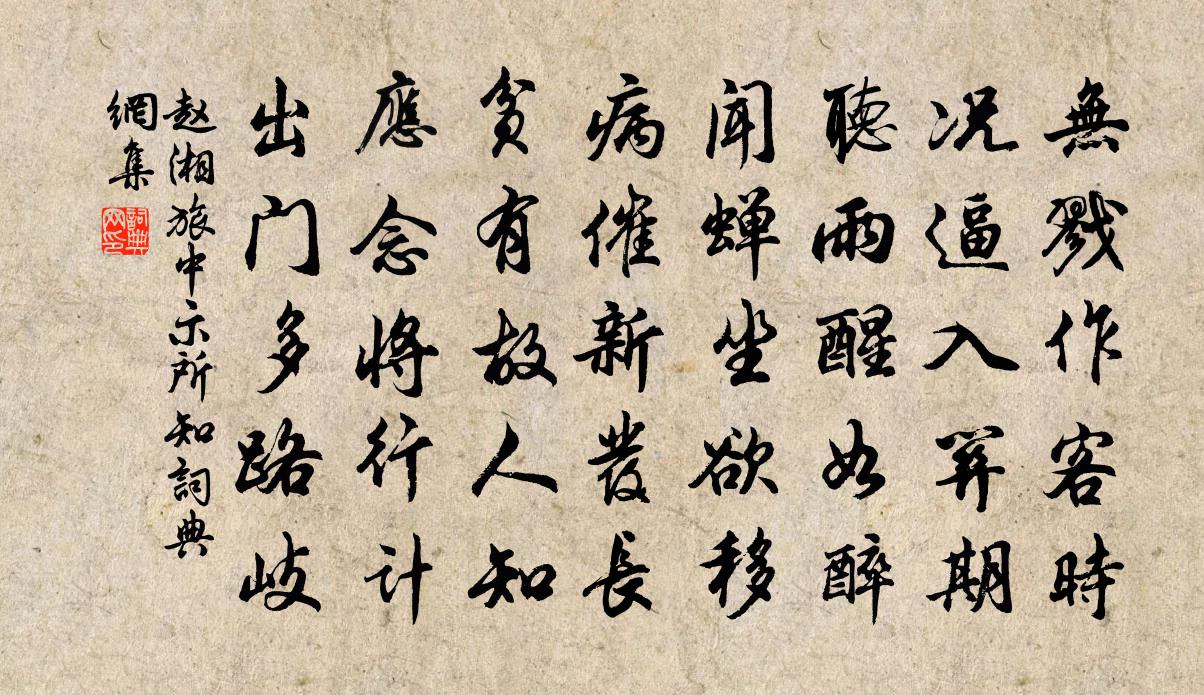 無戮作客時
况逼入笄期
聽雨醒如醉
闻蝉坐欲移
病催新發長
贫有故人知
應念将行计
出门多路岐
赵湘旅中示所知詞典
網集
詞典网印